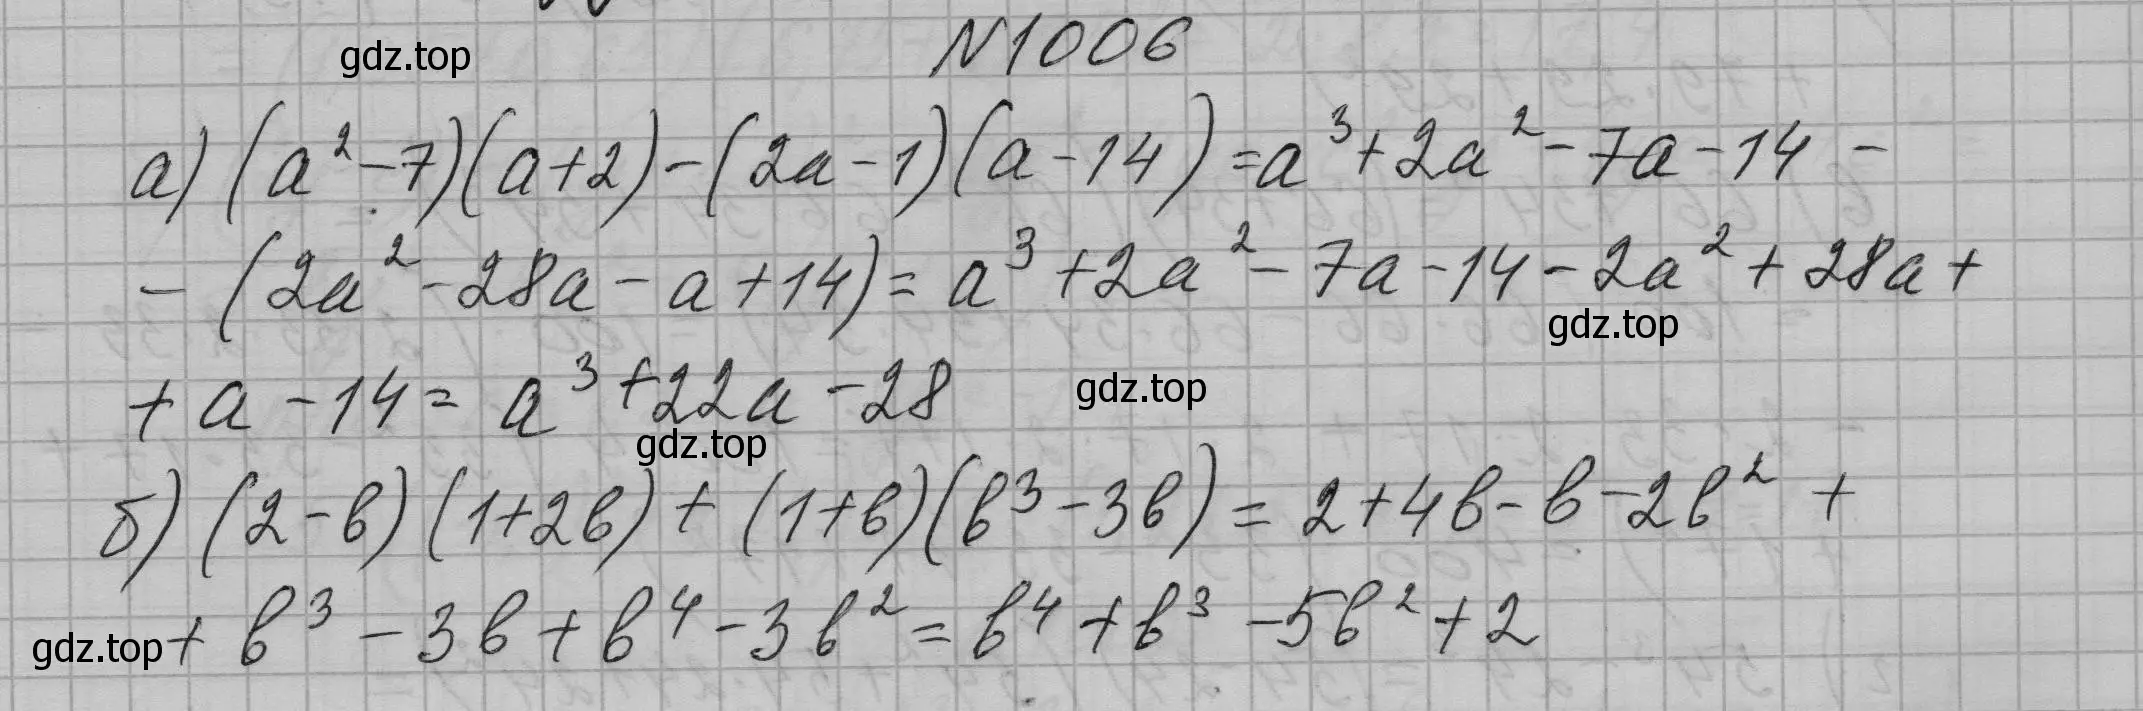 gdz.top
N1006
а) (a²-7)(a+2)-(2a-1)(a-14)=a³+2a²-7a-14-
-(2a²-28a-a+14)=a³+2a²-7a-14-2a²+28a+
gdz.top
+a-14=a³+22a-28
gdz.top
gdz.top
б) (2-b)(1+2b)+(1+b)(b³-3b)=2+4b-b-2b²+
gdz.top
+b³-3b+b⁴-3b²=b⁴+b³-5b²+2